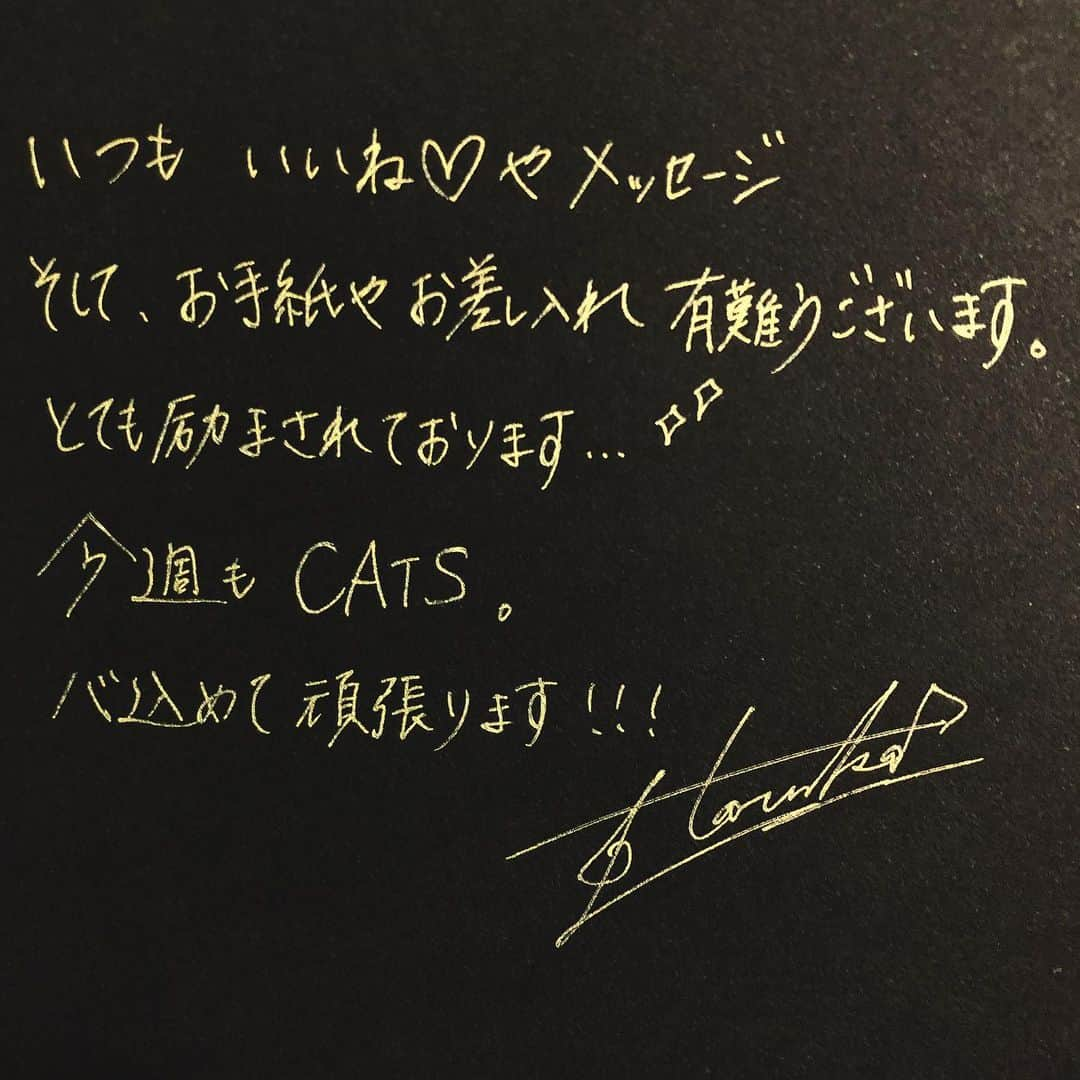 いつも いいね♡やメッセージ
そして、お手紙やお差し入れ 有難うございます。
とても励まされております…
今週も CATS。
心込めて 頑張ります!!!